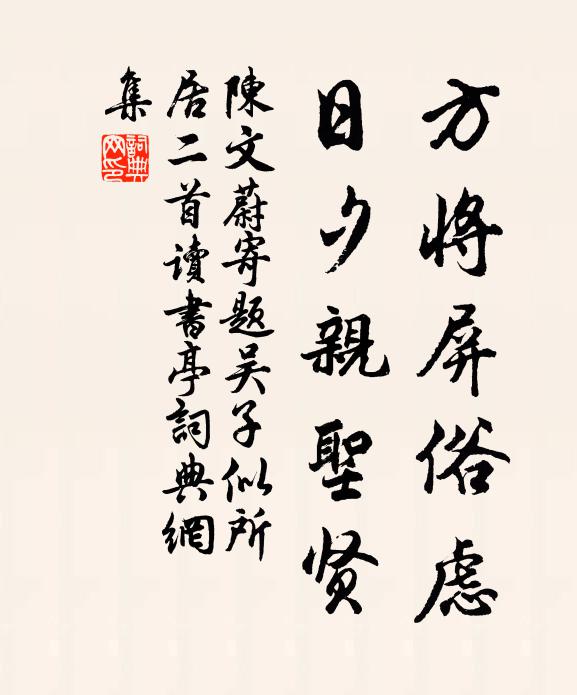 方將屏俗慮
日夕親聖賢
陳文蔚寄題吴子似所
居二首讀書亭詞典網
集
詞典
网印